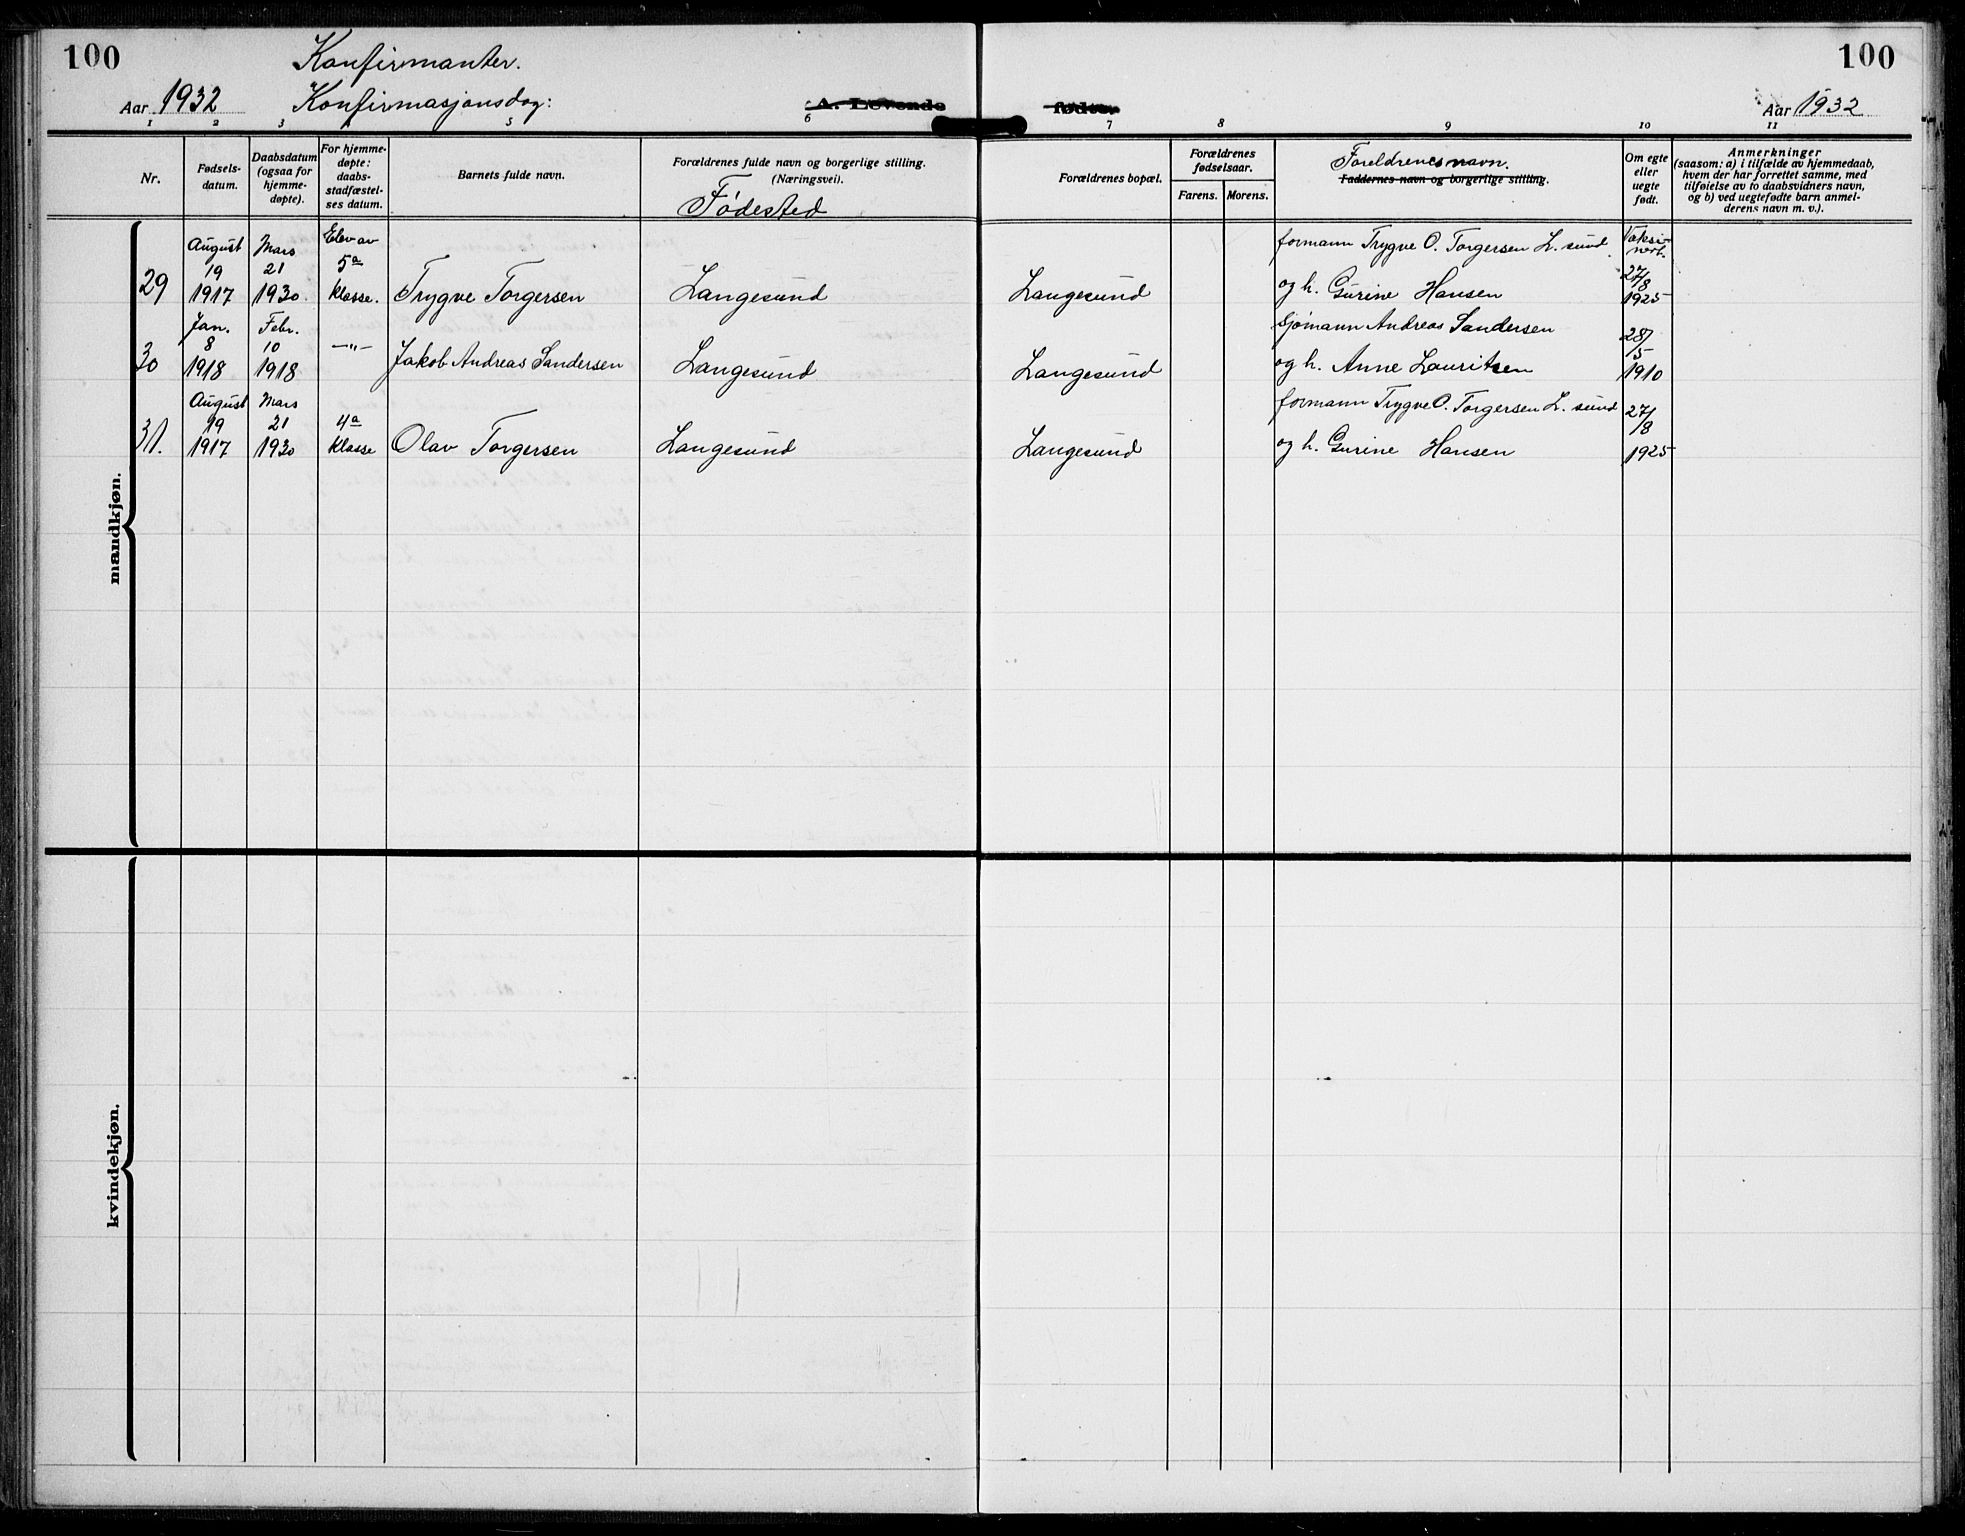 100
Konfirmanter.
Aar 1932 Konfirmasjonsdag:
A. Levende fødte.
100
Aar 1932
1 2 3 4 5 6 7 8 9 10 11
Nr.
Fødsels-
datum.
Daabsdatum
(ogsaa for
hjemme-
døpte).
For hjemme-
døpte:
daabs-
stadfæstel-
ses datum.
Barnets fulde navn.
Forældrenes fulde navn og borgerlige stilling.
(Næringsvei).
Fødested
Forældrenes bopæl.
Forældrenes
fødselsaar.
Farens. Morens.
Foreldrenes navn.
Faddernes navn og borgerlige stilling.
Om egte
eller
uegte
født.
Anmerkninger
(saasom: a) i tilfælde av hjemmedaab,
hvem der har forrettet samme, med
tilføielse av to daabsvidners navn,
og b) ved uegtefødte barn anmel-
derens navn m. v.).
mandkjøn.
August Mars Elev av formann Trygve O. Torgersen L.sund
19 21 5a 27/8
29 1917 1930 klasse. Trygve Torgersen Langesund Langesund og h. Gurine Hansen 1925
Jan. Febr. Sjømann Andreas Sandersen
8 10 —"— 28/5
30 1918 1918 Jakob Andreas Sandersen Langesund Langesund og h. Anne Lauritsen 1910
August Mars formann Trygve O. Torgersen L.sund
19 21 4a 27/8
31. 1917 1930 klasse Olav Torgersen Langesund Langesund og h. Gurine Hansen 1925
kvindekjøn.